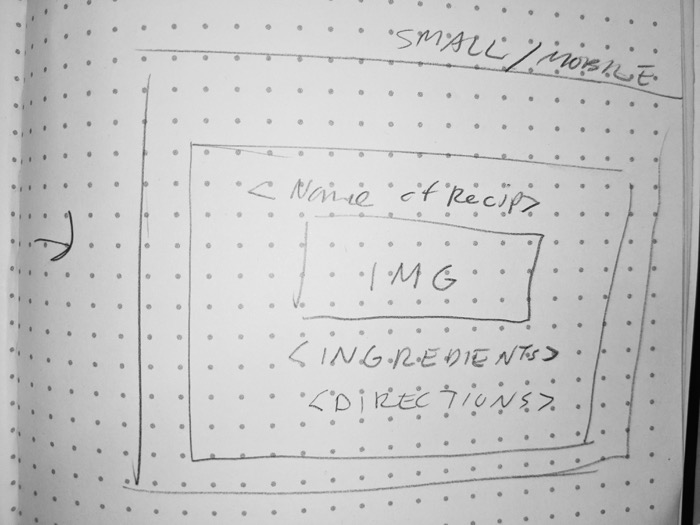 SMALL/MOBILE
<Name of Recip>
IMG
<INGREDIENTS>
<DIRECTIONS>